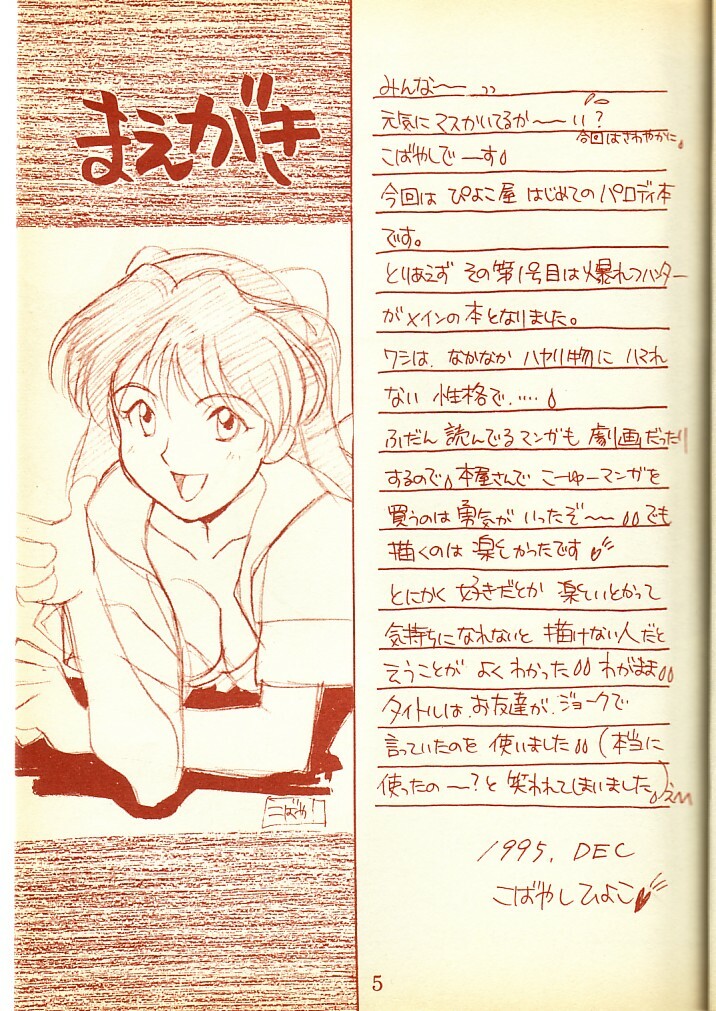 まえがき
みんな〜〜っっ
元気に マスかいてるか〜〜い?
今回はさわやかに
こばやしで ーす
今回は ぴよこ屋 はじめての パロディ本
です。
とりあえず その第1号目は 爆れつハンター
がメインの本となりました。
ワシは、なかなか ハヤリ物に ハマれ
ない 性格で、....
ふだん 読んでるマンガも 劇画だったり
するので 本屋さんで こーゆーマンガを
買うのは 勇気が いったぞ〜〜 でも
描くのは 楽しかったです
とにかく 好きだとか 楽しいとかって
気持ちになれないと 描けない人だと
そうことが よくわかった わがまま
タイトルは、お友達が、ジョークで
言っていたのを 使いました (本当に
使ったの〜?と 笑われてしまいました)
1995, DEC
こばやしひよこ
こばやし
5